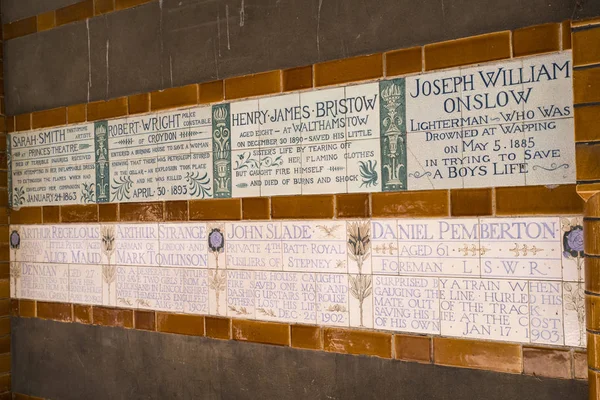 SARAH SMITH · PANTOMIME ARTIST
AT PRINCE'S THEATRE
DIED OF TERRIBLE INJURIES RECEIVED
WHEN ATTEMPTING IN HER INFLAMMABLE DRESS
TO EXTINGUISH THE FLAMES
WHICH HAD ENVELOPED HER COMPANION
JANUARY 24 1863
ROBERT WRIGHT · POLICE CONSTABLE
OF CROYDON
ENTERED A BURNING HOUSE TO SAVE A WOMAN
KNOWING THAT THERE WAS PETROLEUM STORED
IN THE CELLAR · AN EXPLOSION TOOK PLACE
AND HE WAS KILLED
APRIL 30 1893
HENRY·JAMES·BRISTOW
AGED EIGHT · AT WALTHAMSTOW
ON DECEMBER 30 1890 · SAVED HIS LITTLE
SISTER'S LIFE BY TEARING
OFF HER FLAMING CLOTHES
BUT CAUGHT FIRE HIMSELF
AND DIED OF BURNS AND SHOCK
JOSEPH WILLIAM
ONSLOW
LIGHTERMAN · WHO WAS
DROWNED AT WAPPING
ON MAY 5. 1885
IN TRYING TO SAVE
A BOY'S LIFE
ARTHUR REGELOUS
ALICE MAUD
DENMAN
ARTHUR STRANGE
CARMAN OF LONDON AND
MARK TOMLINSON
JOHN SLADE
PRIVATE 4TH BATT. ROYAL
FUSILIERS OF STEPNEY
WHEN HIS HOUSE CAUGHT
FIRE SAVED ONE MAN
DASHING UPSTAIRS TO
ROUSE OTHERS
DEC 26
DANIEL PEMBERTON
AGED 61
FOREMAN L.S.W.R.
SURPRISED BY A TRAIN WHEN
GAUGING THE LINE HURLED HIS
MATE OUT OF THE TRACK
SAVING HIS LIFE AT THE COST
OF HIS OWN JAN 17 1903